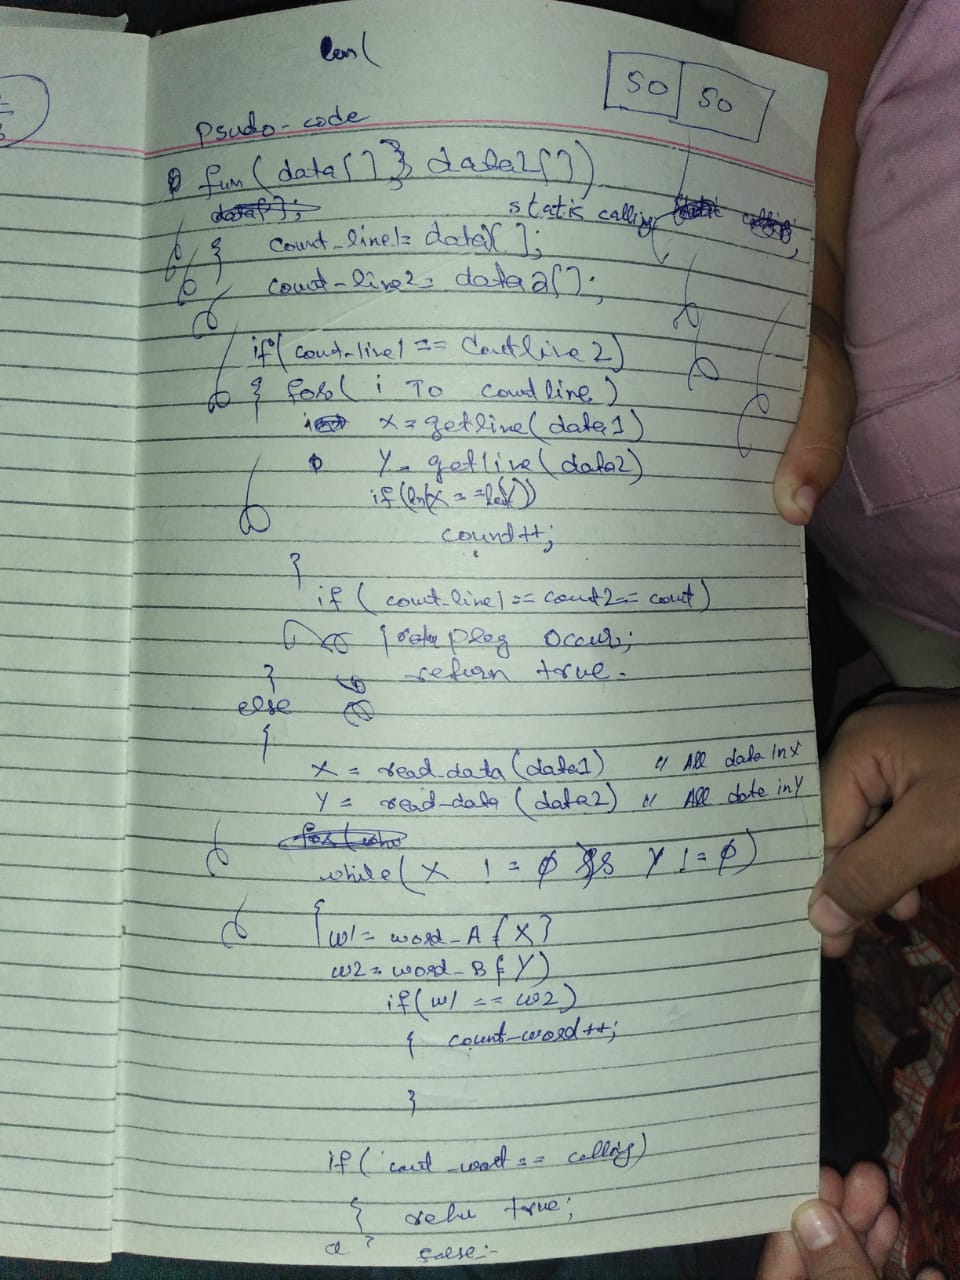 len(
50 50
Psudo-code
fun(data[] } data2[])
data[];
static calling
{ count-line1= data[];
count-line2= data2[];
if( count-line1 == Countline2)
{ for( i To countline)
x = getline(data1)
Y = getline(data2)
if(len(x ==
count++;
}
if ( count-line1 == count2 == count)
{ plag occur;
return true.
}
else
{
X = read-data(data1) // All data in X
Y = read-data (data2) // All data in Y
for(
while( X != φ && Y != φ)
{ w1= word-A { X }
w2= word-B { Y)
if( w1 == w2)
{ count-word++;
}
if ( == calling)
{ true;
false;